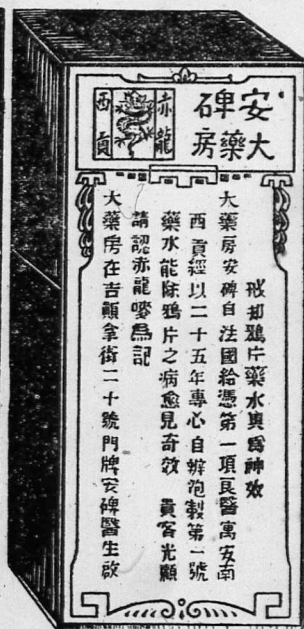 安碑
大藥房
赤龍
西貢
戒却鴉片藥水奥爲神效
大藥房安碑自法國給憑第一項良醫寓安南
西貢經以二十五年專心自辦泡製第一號
藥水能除鴉片之病愈見奇效 貢客光顧
請認赤龍嘜爲記
大藥房在吉顛拿街二十號門牌安碑醫生啟